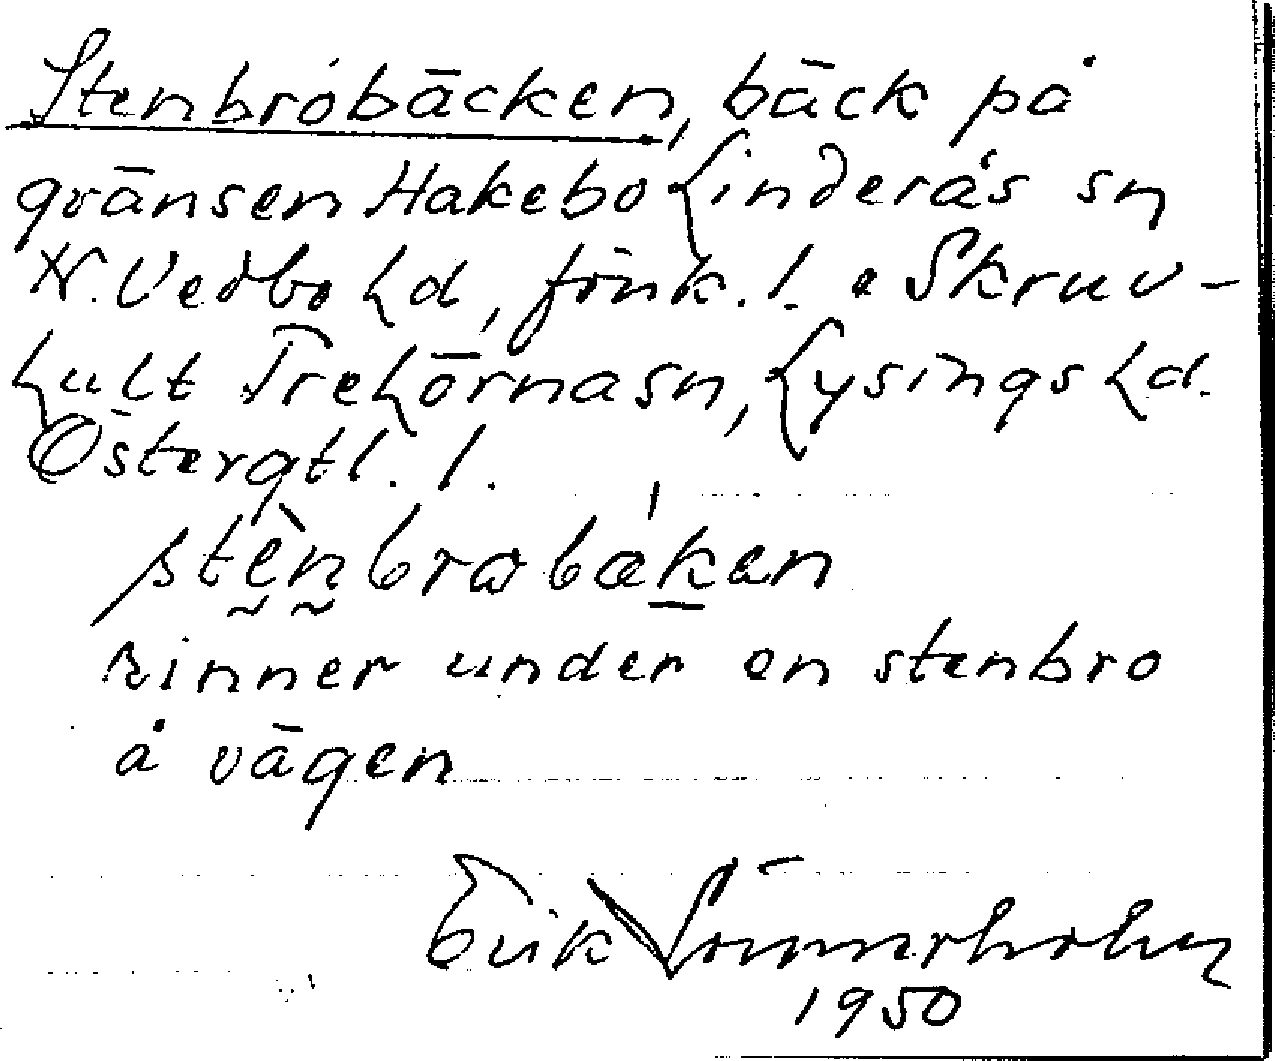 Stenbrobäcken, bäck på
gränsen Hakebo Linderås sn
N. Vedbo hd, Jönk. l. o Skruv-
hult Trehörna sn, Lysings hd.
Östergtl. l.
stènbrobäken
rinner under en stenbro
å vägen
Erik
1950